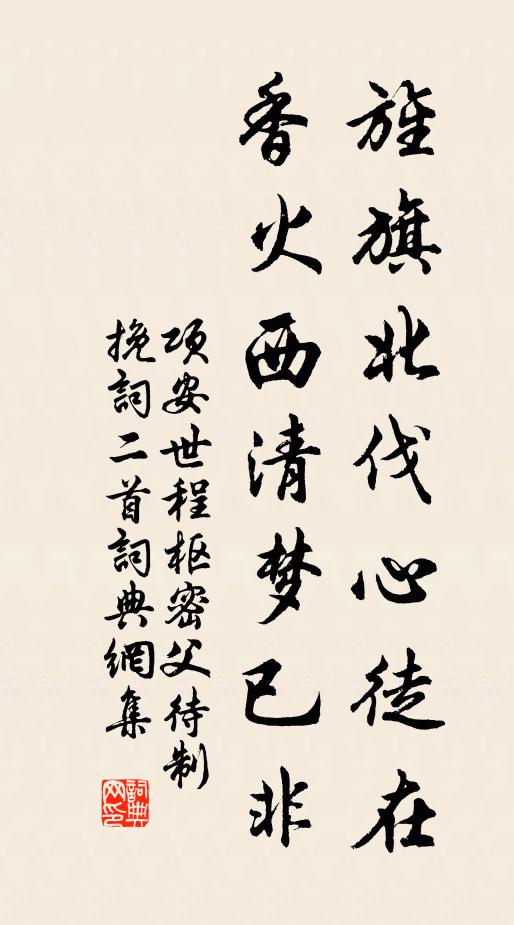 旌旗北伐心徒在
香火西清梦已非
项安世程枢密父待制
挽詞二首詞典網集
詞典
网印